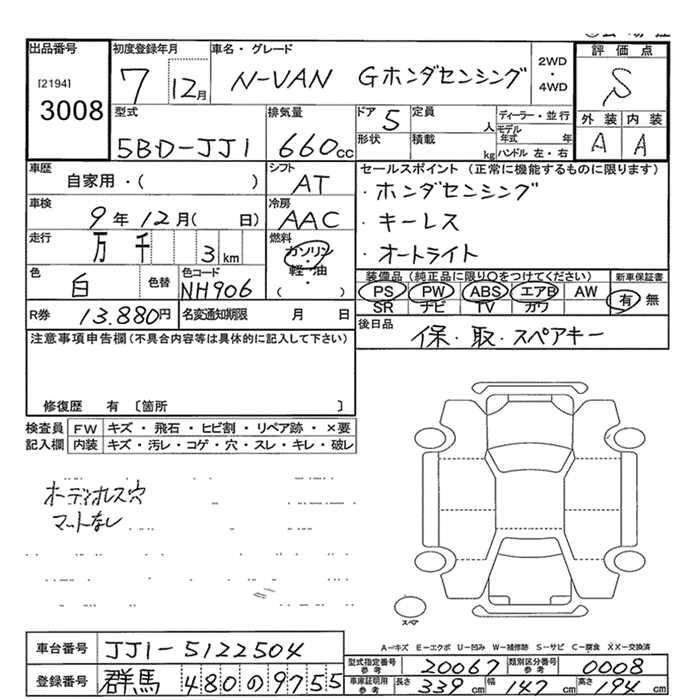 出品番号 初度登録年月 車名・グレード 評価点
[2194] 3008 7 12月 N-VAN Gホンダセンシング 2WD・4WD S
型式 排気量 ドア 5 定員 人 ディーラー・並行 外装 内装
5BD-JJ1 660cc 形状 積載 kg モデル年式 年 ハンドル 左・右 A A
車歴 シフト セールスポイント (正常に機能するものに限ります)
自家用・( ) AT ・ホンダセンシング
車検 冷房 ・キーレス
9年12月( 日) AAC ・オートライト
走行 万 千 3 km 燃料 ガソリン・軽・油・( )
色 白 色替 色コード NH906
装備品 (純正品に限り○をつけてください) 新車保証書
PS PW ABS エアB AW 有・無
SR ナビ TV カワ
R券 13.880円 名変通知期限 月 日
後日品 保・取・スペアキー
注意事項申告欄 (不具合内容等は具体的に記入して下さい)
修復歴 有 〔箇所 〕
検査員 FW キズ・飛石・ヒビ割・リペア跡・×要
記入欄 内装 キズ・汚レ・コゲ・穴・スレ・キレ・破レ
オーディオレス穴
マットなし
スペア
A…キズ E…エクボ U…凹み W…補修跡 S…サビ C…腐食 XX…交換済
車台番号 JJ1-5122504
登録番号 群馬 480 の 9755
型式指定番号 参考 20067 類別区分番号 参考 0008
車庫証明用 参考 長さ 339cm 幅 147cm 高さ 194cm